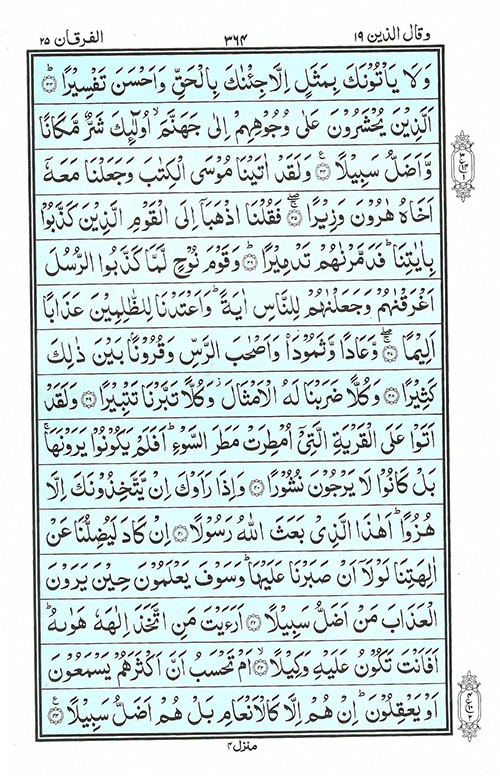 وقال الذين ١٩ ٣٦٤ الفرقان ٢٥
وَلَا يَاْتُوْنَكَ بِمَثَلٍ اِلَّا جِئْنٰكَ بِالْحَقِّ وَاَحْسَنَ تَفْسِيْرًا ؕ‏ ﴿۳۳﴾
اَلَّذِيْنَ يُحْشَرُوْنَ عَلٰى وُجُوْهِهِمْ اِلٰى جَهَنَّمَۙ اُولٰٓئِكَ شَرٌّ مَّكَانًا
وَّاَضَلُّ سَبِيْلًا ﴿۳۴﴾ وَلَقَدْ اٰتَيْنَا مُوْسَى الْكِتٰبَ وَجَعَلْنَا مَعَهٗۤ
اَخَاهُ هٰرُوْنَ وَزِيْرًا ﴿۳۵﴾ فَقُلْنَا اذْهَبَاۤ اِلَى الْقَوْمِ الَّذِيْنَ كَذَّبُوْا
بِاٰيٰتِنَاؕ فَدَمَّرْنٰهُمْ تَدْمِيْرًاؕ ﴿۳۶﴾ وَقَوْمَ نُوْحٍ لَّمَّا كَذَّبُوا الرُّسُلَ
اَغْرَقْنٰهُمْ وَجَعَلْنٰهُمْ لِلنَّاسِ اٰيَةًؕ وَاَعْتَدْنَا لِلظّٰلِمِيْنَ عَذَابًا
اَلِيْمًا ﴿۳۷﴾ وَّعَادًا وَّثَمُوْدَا۟ وَاَصْحٰبَ الرَّسِّ وَقُرُوْنًۢا بَيْنَ ذٰلِكَ
كَثِيْرًا ﴿۳۸﴾ وَكُلًّا ضَرَبْنَا لَهُ الْاَمْثَالَؗ وَكُلًّا تَبَّرْنَا تَتْبِيْرًا ﴿۳۹﴾ وَلَقَدْ
اَتَوْا عَلَى الْقَرْيَةِ الَّتِىْۤ اُمْطِرَتْ مَطَرَ السَّوْءِؕ اَفَلَمْ يَكُوْنُوْا يَرَوْنَهَاۚ
بَلْ كَانُوْا لَا يَرْجُوْنَ نُشُوْرًا ﴿۴۰﴾ وَاِذَا رَاَوْكَ اِنْ يَّتَّخِذُوْنَكَ اِلَّا
هُزُوًاؕ اَهٰذَا الَّذِىْ بَعَثَ اللّٰهُ رَسُوْلًا ﴿۴۱﴾ اِنْ كَادَ لَيُضِلُّنَا عَنْ
اٰلِهَتِنَا لَوْلَاۤ اَنْ صَبَرْنَا عَلَيْهَاؕ وَسَوْفَ يَعْلَمُوْنَ حِيْنَ يَرَوْنَ
الْعَذَابَ مَنْ اَضَلُّ سَبِيْلًا ﴿۴۲﴾ اَرَءَيْتَ مَنِ اتَّخَذَ اِلٰهَهٗ هَوٰٮهُؕ
اَفَاَنْتَ تَكُوْنُ عَلَيْهِ وَكِيْلًاۙ ﴿۴۳﴾ اَمْ تَحْسَبُ اَنَّ اَكْثَرَهُمْ يَسْمَعُوْنَ
اَوْ يَعْقِلُوْنَؕ اِنْ هُمْ اِلَّا كَالْاَنْعَامِ بَلْ هُمْ اَضَلُّ سَبِيْلًا ﴿۴۴﴾
منزل ۴